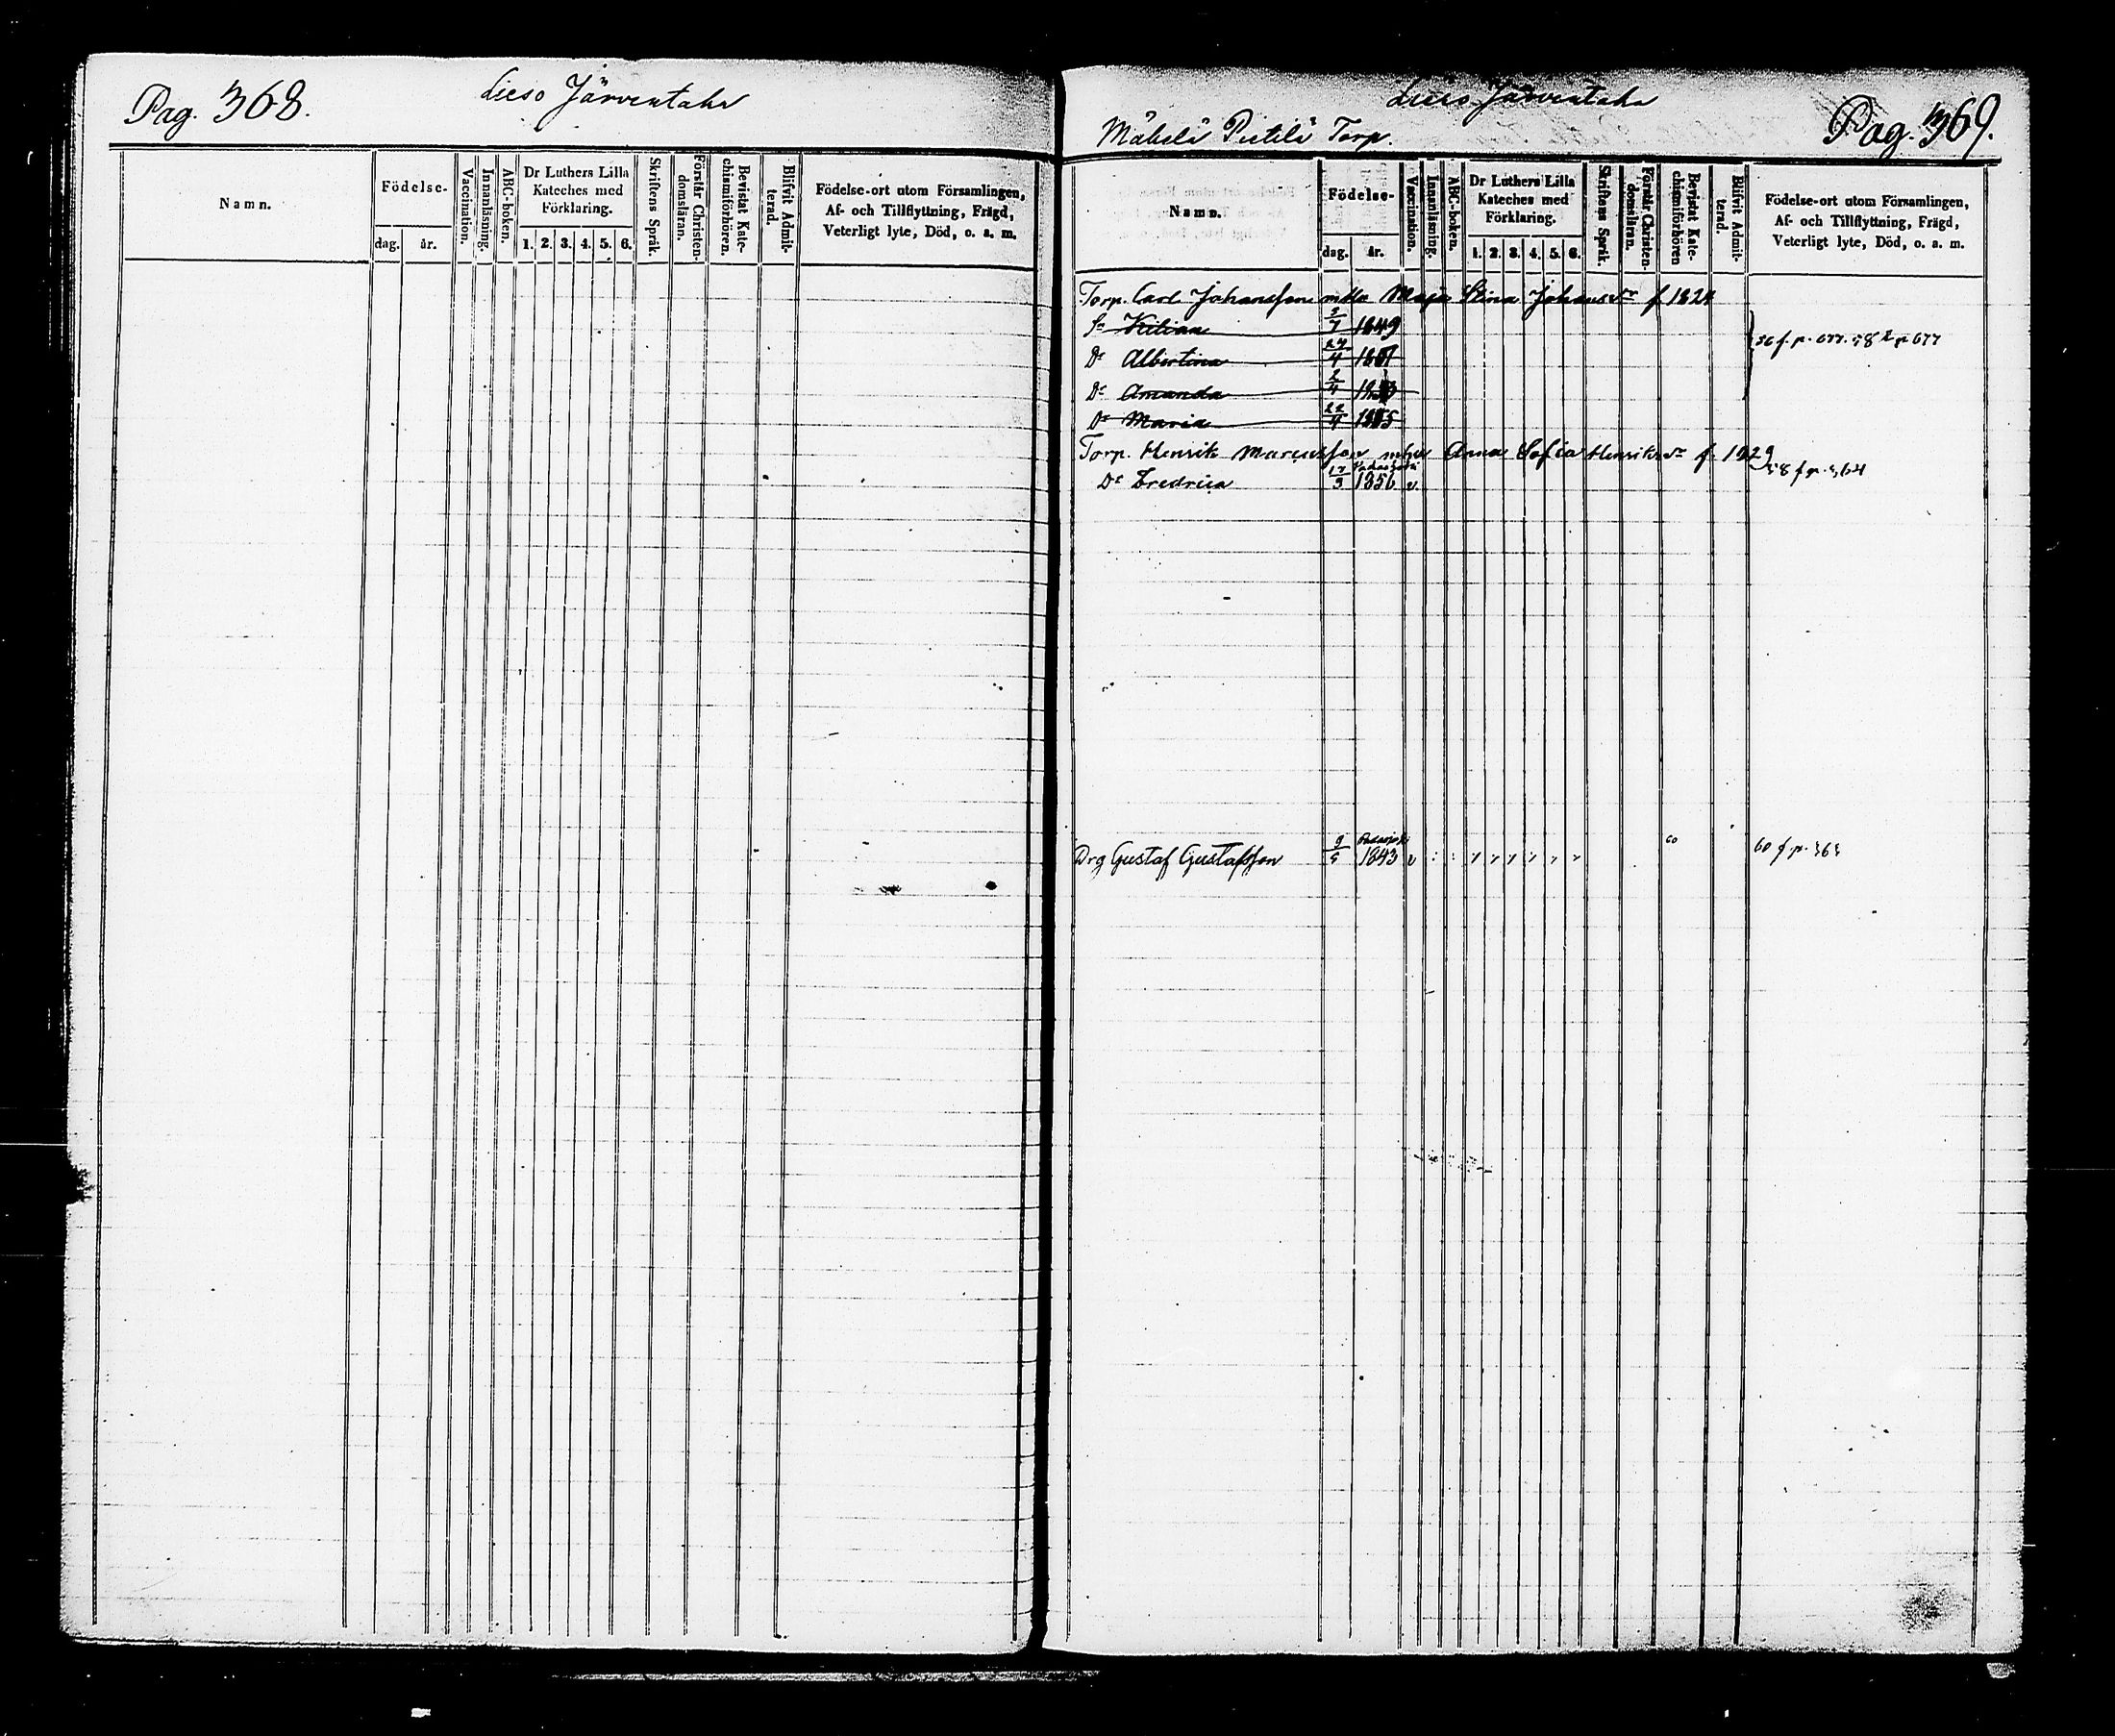 Pag. 368.
Lieso Järventaka
Namn.
Födelse-
dag. år.
Vaccination.
Innanläsning.
ABC-boken.
Dr Luthers Lilla Kateches med Förklaring.
1. 2. 3. 4. 5. 6.
Skriftens Språk.
Förstår Christendomsläran.
Bevistat Katechismiförhören.
Blifvit Admitterad.
Födelse-ort utom Församlingen,
Af- och Tillflyttning, Frägd,
Veterligt lyte, Död, o. s. m.
Lieso Järventaka
Pag. 369.
Mäkelä Pietilä Torp.
Namn.
Födelse-
dag. år.
Vaccination.
Innanläsning.
ABC-boken.
Dr Luthers Lilla Kateches med Förklaring.
1. 2. 3. 4. 5. 6.
Skriftens Språk.
Förstår Christendomsläran.
Bevistat Katechismiförhören
Blifvit Admitterad.
Födelse-ort utom Församlingen,
Af- och Tillflyttning, Frägd,
Veterligt lyte, Död, o. a. m.
Torp. Carl Johansson Maja Stina Johansdr f 1824
Sn 1849
Dr Albertina 24/4
Dr Amanda 2/4
Dr Maria 22/4 1855
56 f. p. 677. 58 t p 677
Torp. Henrik Marcusson Anna Sofia Henriksdr f. 1829
Dr Fredrica 17/3 1856 v
58 f p. 364
Drg Gustaf Gustafsson 9/5 Padasjoki 1843 v 60
60 f. p. 363